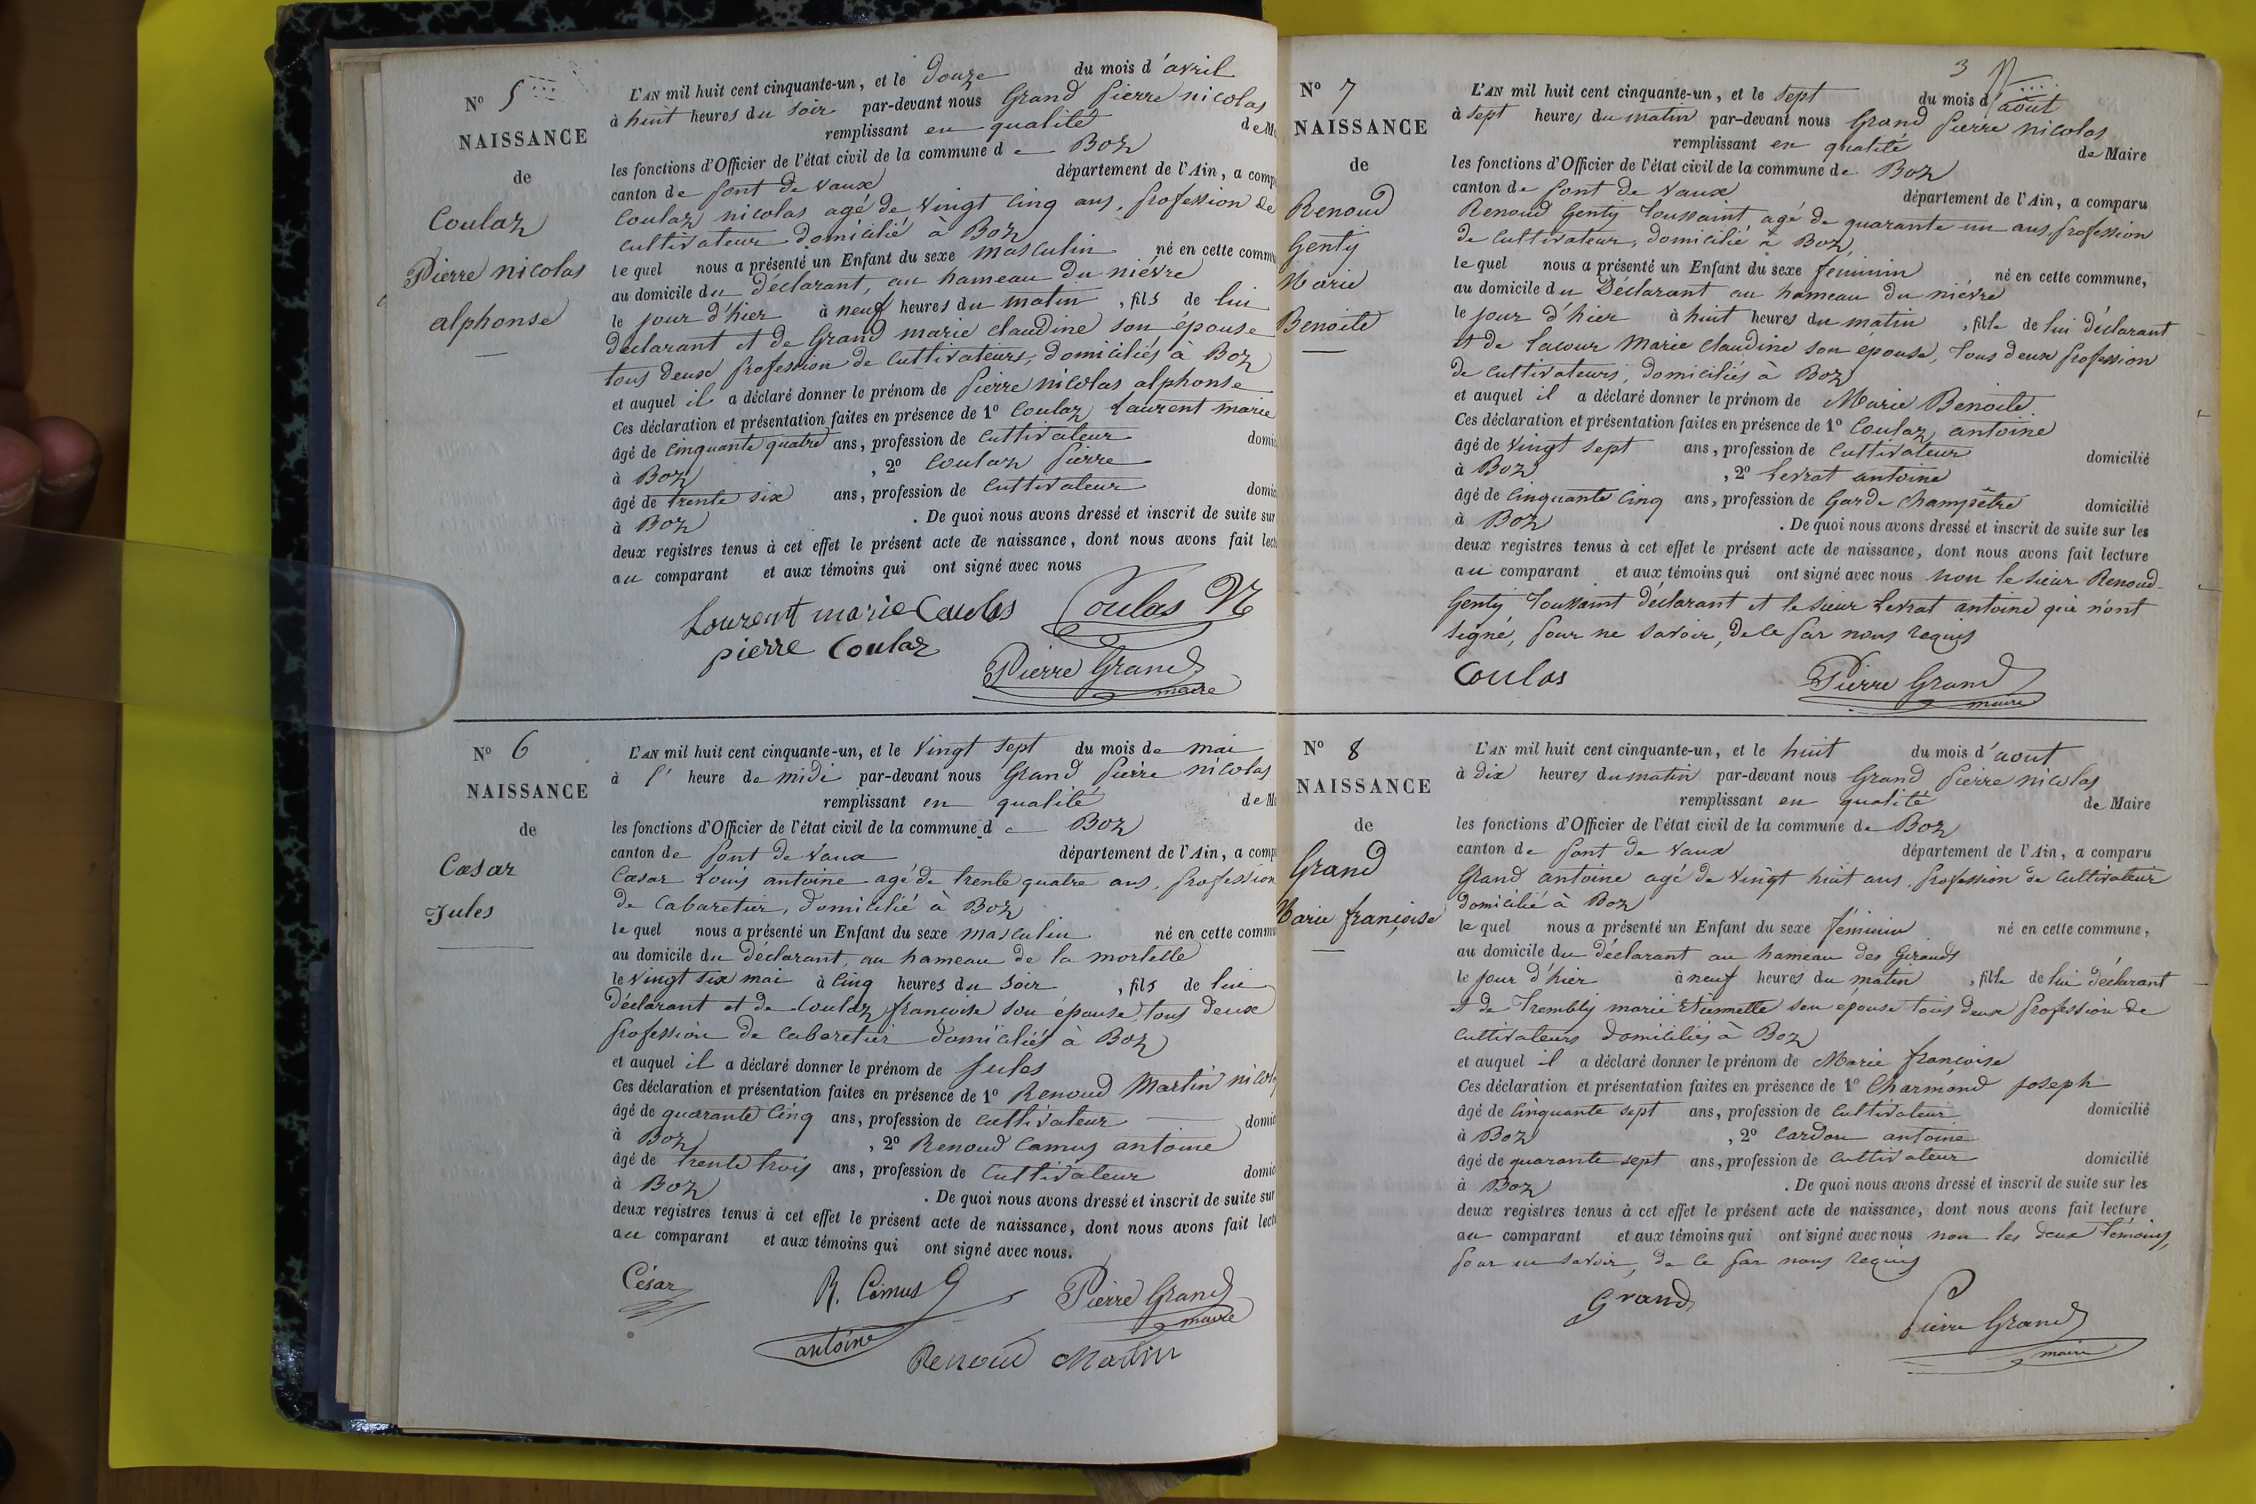 N° 5
NAISSANCE
de
Coulaz
Pierre nicolas
alphonse
L'AN mil huit cent cinquante-un, et le Douze du mois d'avril
à huit heures du soir par-devant nous Grand Pierre nicolas
remplissant en qualité de M
les fonctions d'Officier de l'état civil de la commune de Boz
canton de Pont de Vaux département de l'Ain, a comp
Coulaz nicolas agé de vingt cinq ans, profession de
cultivateur domicilié à Boz
le quel nous a présenté un Enfant du sexe masculin né en cette commu
au domicile du déclarant, au hameau du nièvre
le jour d'hier à neuf heures du matin, fils de lui
déclarant et de Grand marie claudine son épouse
tous deux profession de cultivateurs, domiciliés à Boz
et auquel il a déclaré donner le prénom de Pierre nicolas alphonse
Ces déclaration et présentation faites en présence de 1° Coulaz Laurent marie
âgé de cinquante quatre ans, profession de cultivateur domic
à Boz, 2° Coulaz Pierre
âgé de trente six ans, profession de cultivateur domic
à Boz. De quoi nous avons dressé et inscrit de suite sur
deux registres tenus à cet effet le présent acte de naissance, dont nous avons fait lect
au comparant et aux témoins qui ont signé avec nous
Laurent marie Coulas Coulas N
pierre Coulaz
Pierre Grand
maire
N° 6
NAISSANCE
de
Cæsar
Jules
L'AN mil huit cent cinquante-un, et le vingt sept du mois de mai
à l' heure de midi par-devant nous Grand Pierre nicolas
remplissant en qualité de M
les fonctions d'Officier de l'état civil de la commune de Boz
canton de Pont de Vaux département de l'Ain, a comp
Cæsar Louis antoine agé de trente quatre ans, profession
de cabaretier, domicilié à Boz
le quel nous a présenté un Enfant du sexe masculin né en cette commu
au domicile du déclarant, au hameau de la mortelle
le vingt six mai à cinq heures du soir, fils de lui
déclarant et de Coulaz françoise son épouse, tous deux
profession de cabaretier domiciliés à Boz
et auquel il a déclaré donner le prénom de Jules
Ces déclaration et présentation faites en présence de 1° Renoud Martin nicolas
âgé de quarante cinq ans, profession de cultivateur domic
à Boz, 2° Renoud Camus antoine
âgé de trente trois ans, profession de cultivateur domic
à Boz. De quoi nous avons dressé et inscrit de suite sur
deux registres tenus à cet effet le présent acte de naissance, dont nous avons fait lect
au comparant et aux témoins qui ont signé avec nous.
César R. Camus Pierre Grand
maire
antoine Renoud Martin
3
N° 7
NAISSANCE
de
Renoud
Genty
Marie
Benoite
L'AN mil huit cent cinquante-un, et le sept du mois d'aout
à sept heures du matin par-devant nous Grand Pierre nicolas
remplissant en qualité de Maire
les fonctions d'Officier de l'état civil de la commune de Boz
canton de Pont de Vaux département de l'Ain, a comparu
Renoud Genty Toussaint agé de quarante un ans, profession
de cultivateur, domicilié à Boz
le quel nous a présenté un Enfant du sexe féminin né en cette commune,
au domicile du Déclarant au hameau du nièvre
le jour d'hier à huit heures du matin, fille de lui déclarant
et de Lacour Marie Claudine son épouse, tous deux profession
de cultivateurs, domiciliés à Boz
et auquel il a déclaré donner le prénom de Marie Benoite
Ces déclaration et présentation faites en présence de 1° Coulaz antoine
âgé de vingt sept ans, profession de cultivateur domicilié
à Boz, 2° Levrat antoine
âgé de cinquante cinq ans, profession de Garde champêtre domicilié
à Boz. De quoi nous avons dressé et inscrit de suite sur les
deux registres tenus à cet effet le présent acte de naissance, dont nous avons fait lecture
au comparant et aux témoins qui ont signé avec nous non le sieur Renoud
Genty Toussaint déclarant et le sieur Levrat antoine qui n'ont
signé, pour ne savoir, de ce par nous requis
Coulas Pierre Grand
maire
N° 8
NAISSANCE
de
Grand
Marie françoise
L'AN mil huit cent cinquante-un, et le huit du mois d'aout
à dix heures du matin par-devant nous Grand Pierre nicolas
remplissant en qualité de Maire
les fonctions d'Officier de l'état civil de la commune de Boz
canton de Pont de Vaux département de l'Ain, a comparu
Grand antoine agé de vingt huit ans, profession de cultivateur
domicilié à Boz
le quel nous a présenté un Enfant du sexe féminin né en cette commune,
au domicile du déclarant au hameau des Girauds
le jour d'hier à neuf heures du matin, fille de lui déclarant
et de Trembly marie Etiennette son épouse tous deux profession de
cultivateurs domiciliés à Boz
et auquel il a déclaré donner le prénom de Marie françoise
Ces déclaration et présentation faites en présence de 1° Charmond Joseph
âgé de cinquante sept ans, profession de cultivateur domicilié
à Boz, 2° Cardon antoine
âgé de quarante sept ans, profession de cultivateur domicilié
à Boz. De quoi nous avons dressé et inscrit de suite sur les
deux registres tenus à cet effet le présent acte de naissance, dont nous avons fait lecture
au comparant et aux témoins qui ont signé avec nous non les deux témoins,
pour ne savoir, de ce par nous requis
Grand Pierre Grand
maire